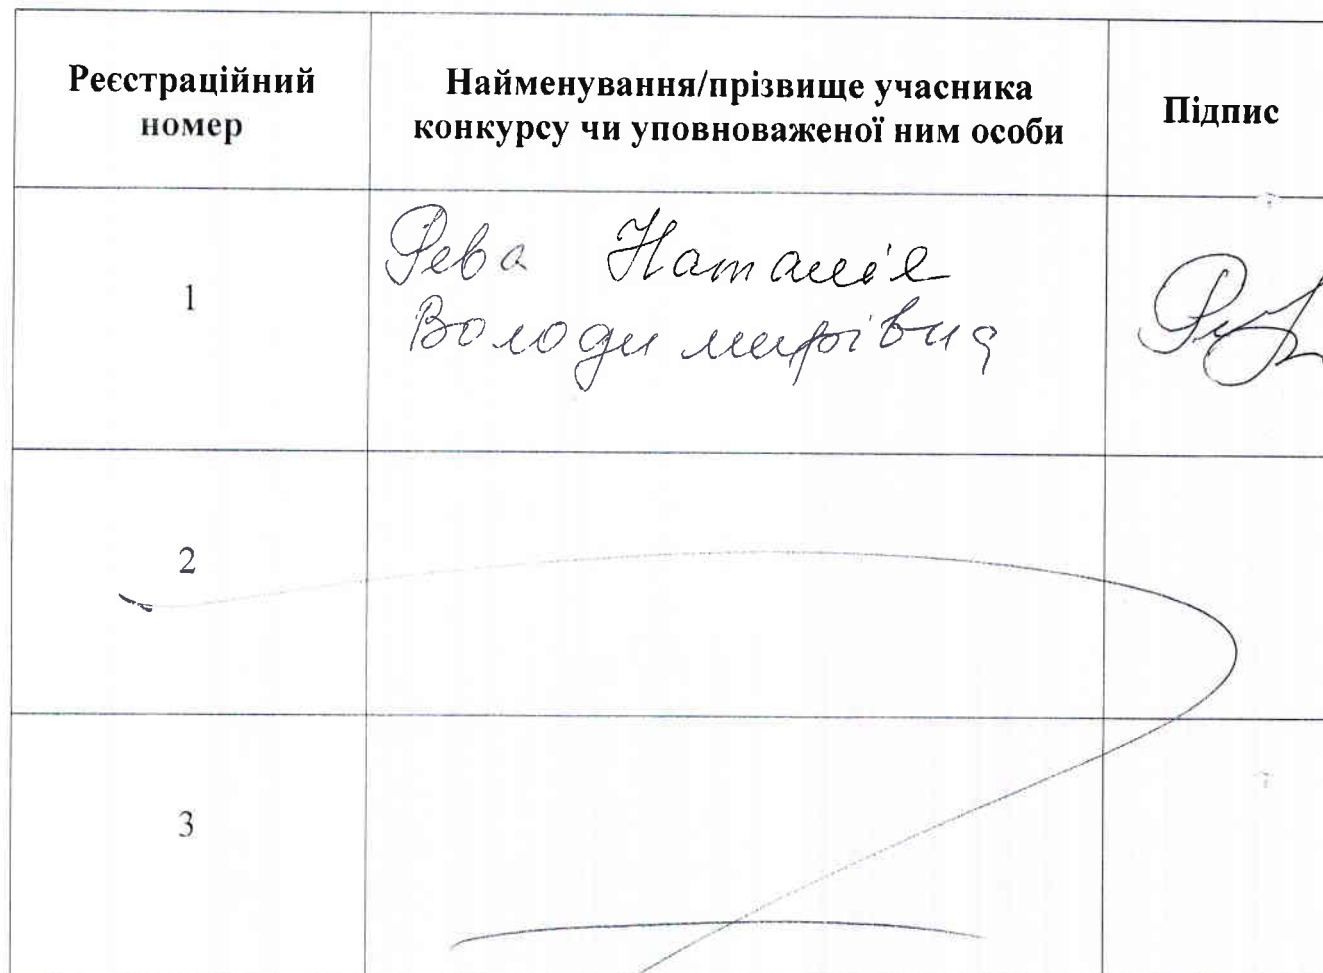 Реєстраційний
номер
Найменування/прізвище учасника
конкурсу чи уповноваженої ним особи
Підпис
1
Рева Наталія
Володимирівна
2
3